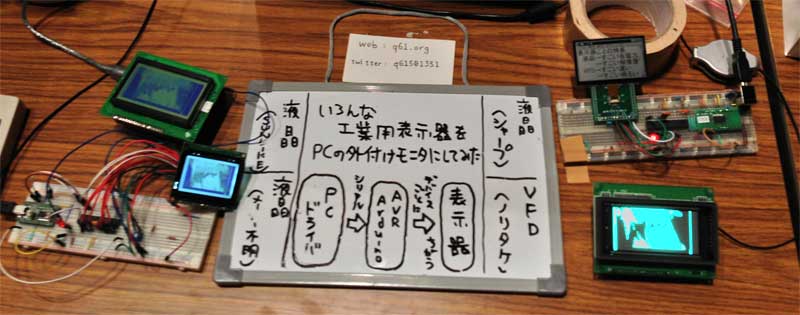 web : q61.org
twitter : q61501351
いろんな
工業用表示器を
PCの外付けモニタにしてみた
液晶
液晶
(メーカー不明)
PC
ドライバ
シリアル
AVR
Arduino
デバイス
ごとに
ちがう
表示器
液晶
(シャープ)
VFD
(ノリタケ)